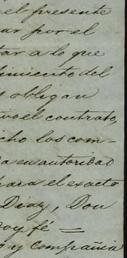 el presente
por el
tor a lo que
dimiento del
obligan
el contrato,
cho los com-
su autoridad
para el exacto
Diaz, Don
doy fé =
y compañia